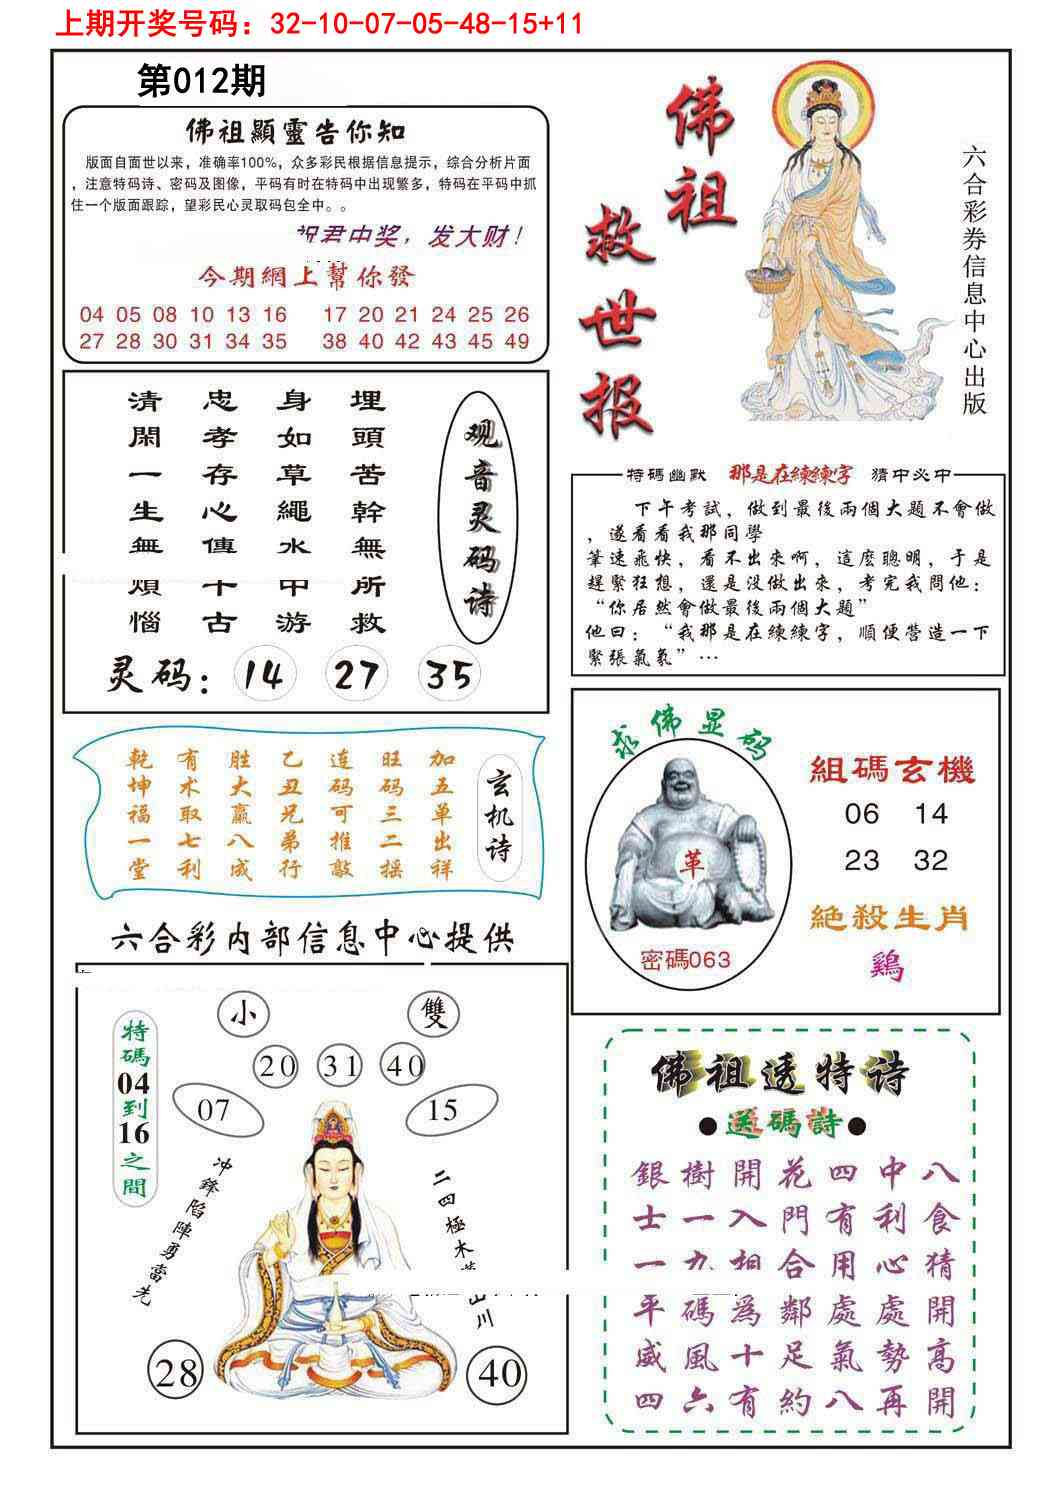 上期开奖号码：32-10-07-05-48-15+11
第012期
佛祖顯靈告你知
版面自面世以来，准确率100%，众多彩民根据信息提示，综合分析片面
，注意特码诗、密码及图像，平码有时在特码中出现繁多，特码在平码中抓
住一个版面跟踪，望彩民心灵取码包全中。。
祝君中奖，发大财！
今期網上幫你發
04 05 08 10 13 16 17 20 21 24 25 26
27 28 30 31 34 35 38 40 42 43 45 49
佛祖
救世报
六合彩券信息中心出版
观音灵码诗
埋頭苦幹無所救
身如草繩水中游
忠孝存心傳千古
清閑一生無煩惱
灵码：14 27 35
特碼幽默 那是在練練字 猜中必中
下午考試，做到最後兩個大題不會做
，遂看看我那同學
筆速飛快，看不出來啊，這麼聰明，于是
趕緊狂想，還是沒做出來，考完我問他：
“你居然會做最後兩個大題”
他曰：“我那是在練練字，順便營造一下
緊張氣氛”…
玄机诗
加五单出祥
旺码三二摇
连码可推敲
乙丑兄弟行
胜大赢八成
有术取七利
乾坤福一堂
求佛显码
革
密碼063
組碼玄機
06 14
23 32
絕殺生肖
鷄
六合彩内部信息中心提供
特碼04到16之間
小 雙
20 31 40
07 15
冲鋒陷陣勇當先
二四極木
山川
28 40
佛祖透特诗
●送碼詩●
八食猜開高開
中利心處勢再
四有用處氣八
花門合鄰足約
開入相爲十有
樹一九碼風六
銀士一平威四